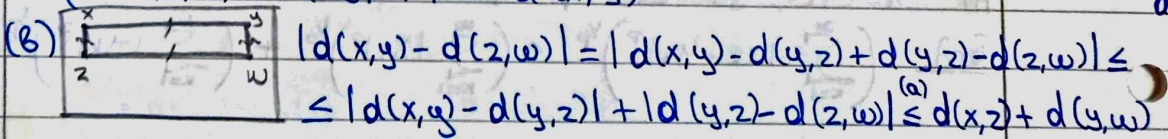 (B) x y z w |d(x,y) - d(z,w)| = |d(x,y) - d(y,z) + d(y,z) - d(z,w)| ≤
≤ |d(x,y) - d(y,z)| + |d(y,z) - d(z,w)| ≤(a) d(x,z) + d(y,w)